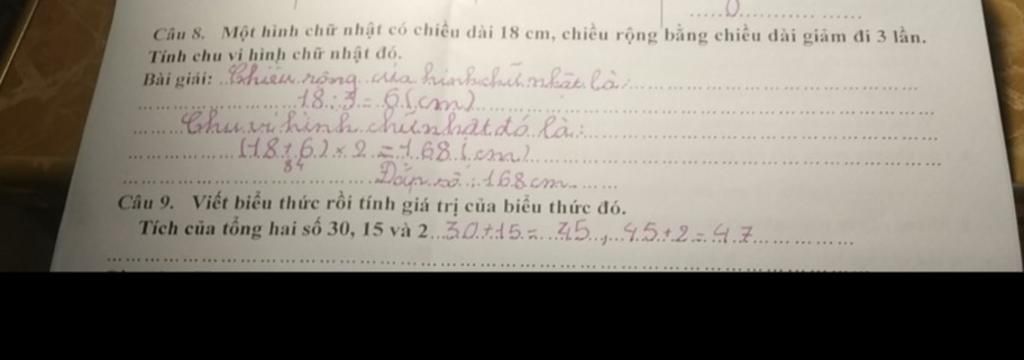 0
Câu 8. Một hình chữ nhật có chiều dài 18 cm, chiều rộng bằng chiều dài giảm đi 3 lần.
Tính chu vi hình chữ nhật đó.
Bài giải: Chiều rộng của hình chữ nhật là:
18 : 3 = 6 (cm)
Chu vi hình chữ nhật đó là:
(18 + 6) × 2 = 168 (cm)
84
Đáp số : 168 cm
Câu 9. Viết biểu thức rồi tính giá trị của biểu thức đó.
Tích của tổng hai số 30, 15 và 2 30 + 15 = 45, 45 + 2 = 47